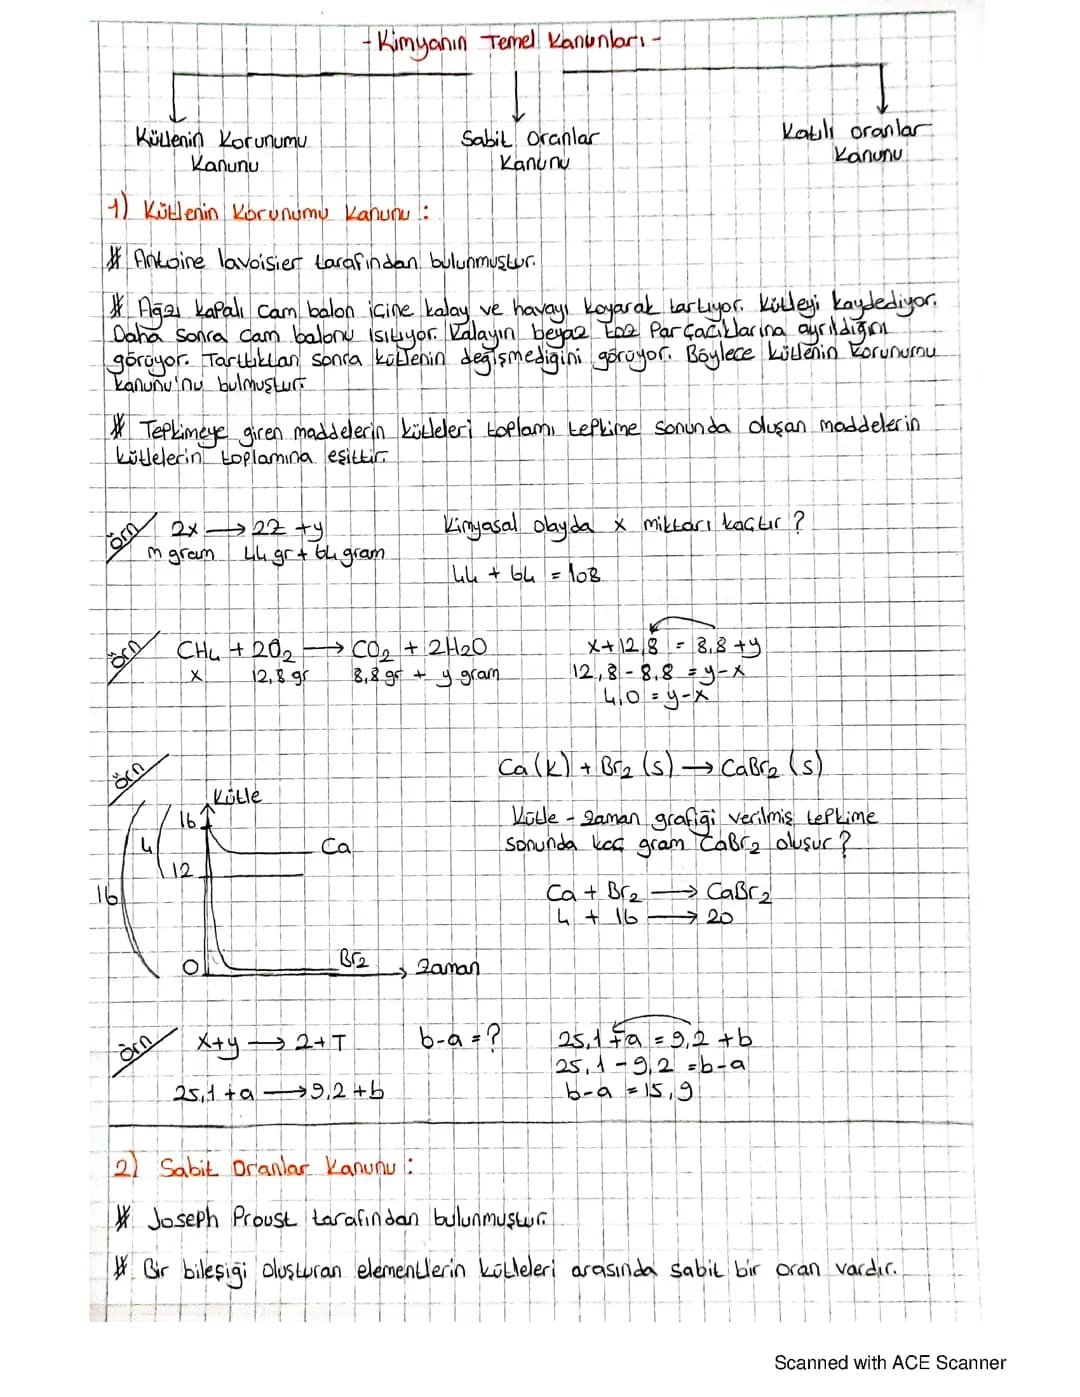 -Kimyanın Temel Kanunları-
Kütlenin Korunumu
Kanunu
Sabit Oranlar
Kanunu
Katlı oranlar
Kanunu
1) Kütlenin Korunumu Kanunu :
* Antoine lavoisier tarafından bulunmuştur.
* Ağzı kapalı cam balon içine kalay ve havayı koyarak tartıyor. Kütleyi kaydediyor.
Daha sonra cam balonu ısıtıyor. Kalayın beyaz toz Parçacıklarına ayrıldığını
görüyor. Tarttıktan sonra kütlenin değişmediğini görüyor. Böylece kütlenin korunumu
kanunu'nu bulmuştur.
* Tepkimeye giren maddelerin kütleleri toplamı tepkime sonunda oluşan maddelerin
kütlelerin toplamına eşittir.
örn 2x → 2Z + y
m gram 44 gr + 64 gram
Kimyasal olayda x miktarı kaçtır ?
44 + 64 = 108
örn CH4 + 2O2 → CO2 + 2H2O
x 12,8 gr 8,8 gr + y gram
x+12,8 = 8,8+y
12,8-8,8 = y-x
4,0 = y-x
örn
Kütle
16
4
12
16
0
Ca
Br2
Zaman
Ca(k) + Br2 (s) → CaBr2 (s)
Kütle - zaman grafiği verilmiş tepkime
sonunda kaç gram CaBr2 oluşur ?
Ca + Br2 → CaBr2
4 + 16 → 20
örn x+y → 2+T
25,1 + a → 9,2 + b
b-a = ?
25,1 + a = 9,2 + b
25,1 - 9,2 = b-a
b-a = 15,9
2) Sabit Oranlar Kanunu :
* Joseph Proust tarafından bulunmuştur.
* Bir bileşiği oluşturan elementlerin kütleleri arasında sabit bir oran vardır.
Scanned with ACE Scanner